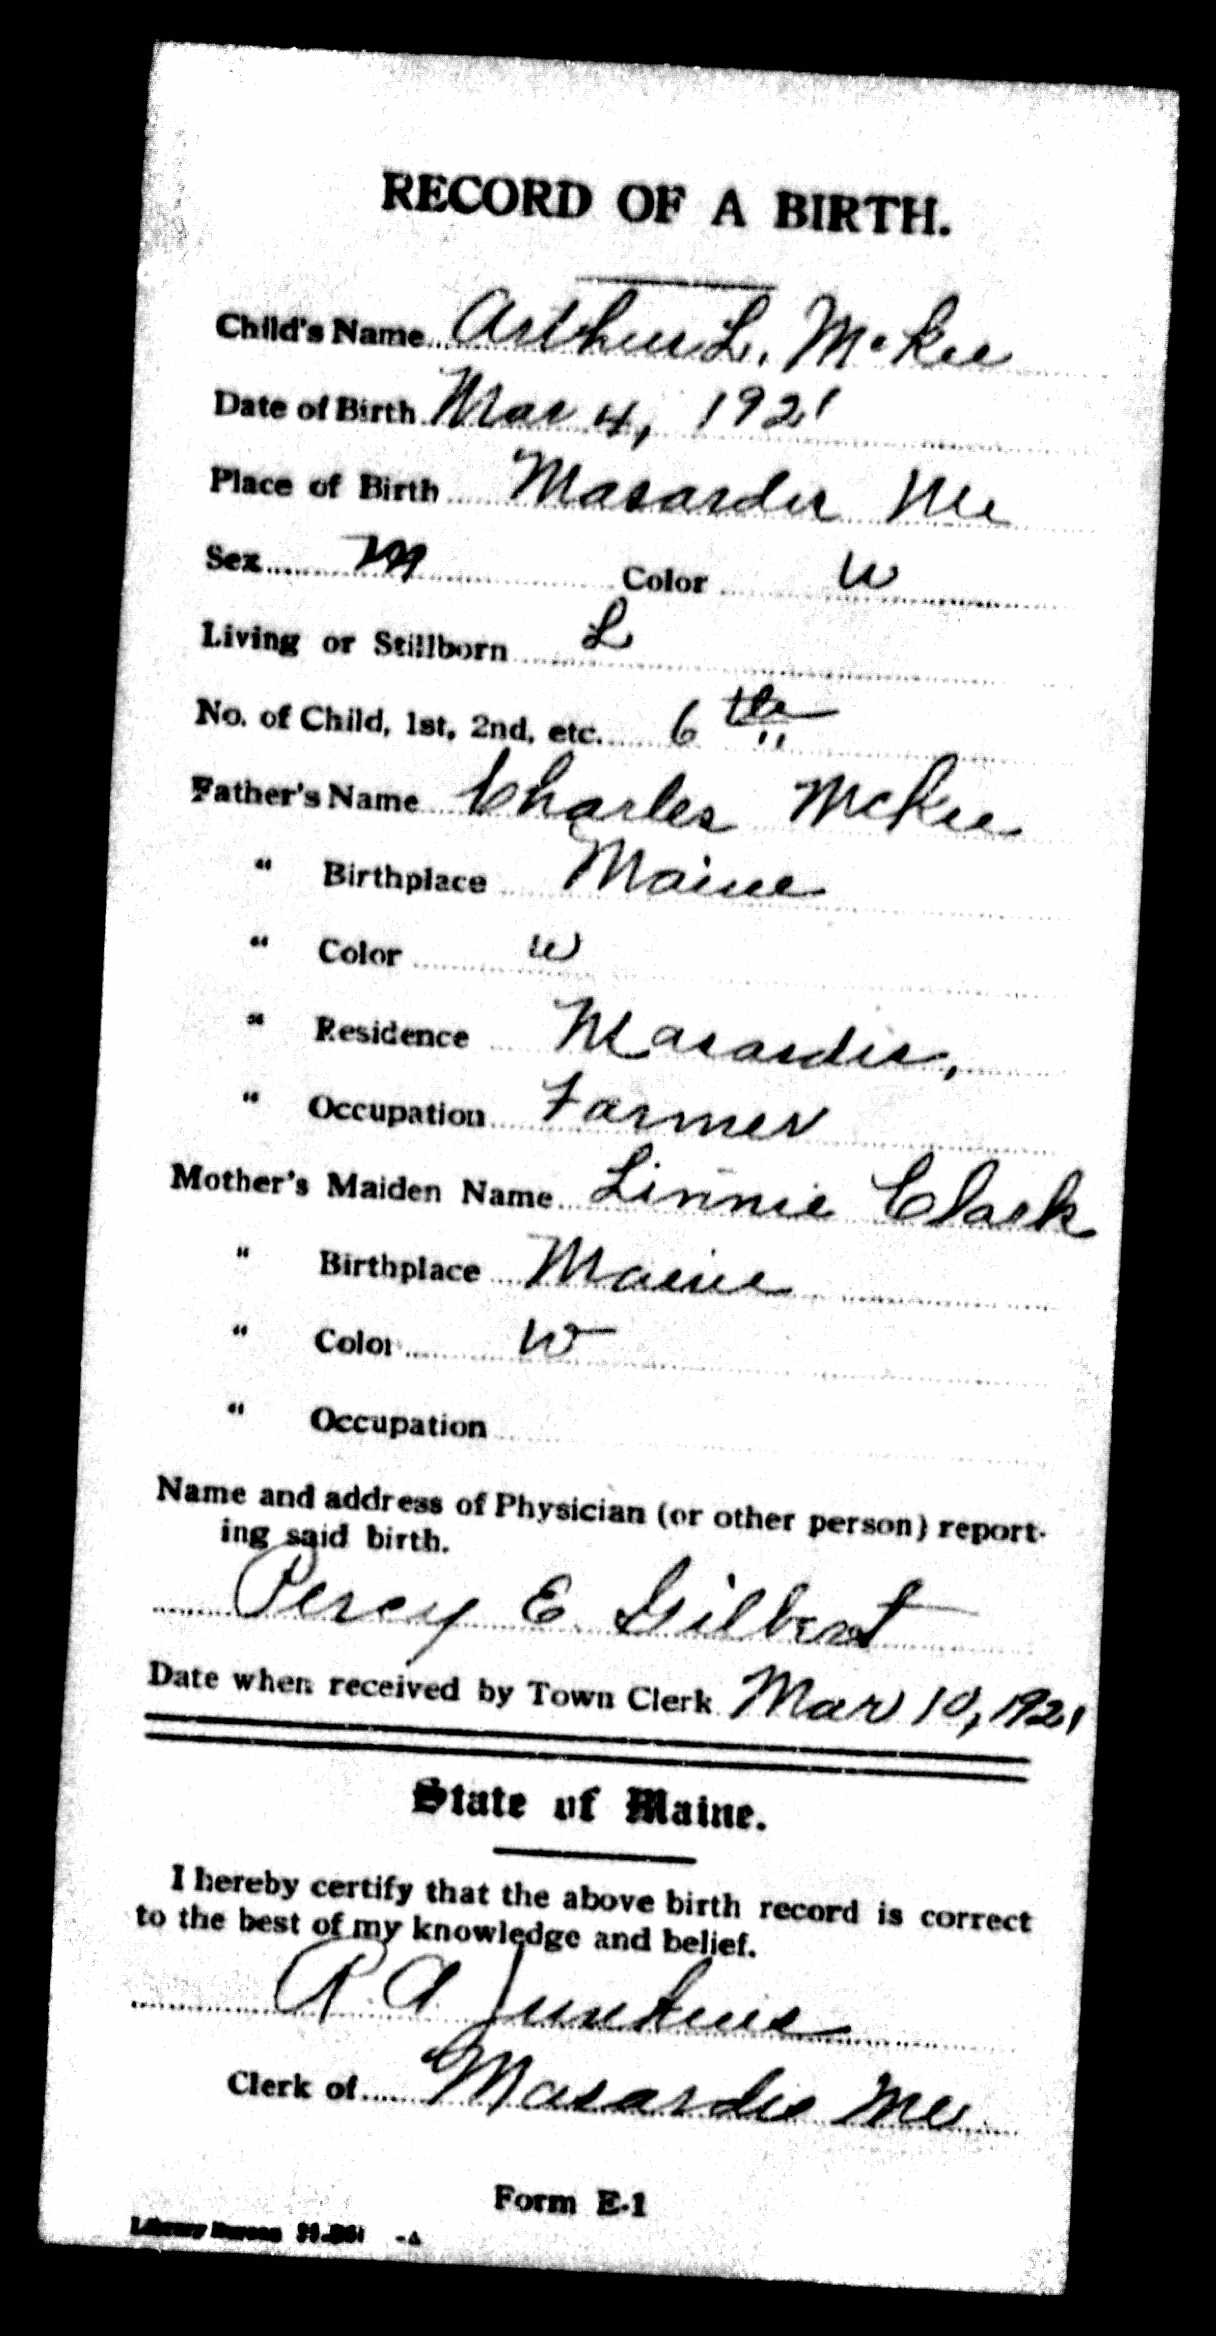 RECORD OF A BIRTH.
Child's Name Arthur L. McKee
Date of Birth Mar 4, 1921
Place of Birth Masardis Me
Sex M Color W
Living or Stillborn L
No. of Child, 1st, 2nd, etc. 6th
Father's Name Charles McKee
" Birthplace Maine
" Color W
" Residence Masardis,
" Occupation Farmer
Mother's Maiden Name Linnie Clark
" Birthplace Maine
" Color W
" Occupation
Name and address of Physician (or other person) report-
ing said birth.
Percy E. Gilbert
Date when received by Town Clerk Mar 10, 1921
State of Maine.
I hereby certify that the above birth record is correct
to the best of my knowledge and belief.
R. A. Junkins
Clerk of Masardis Me
Form E-1
Library Bureau